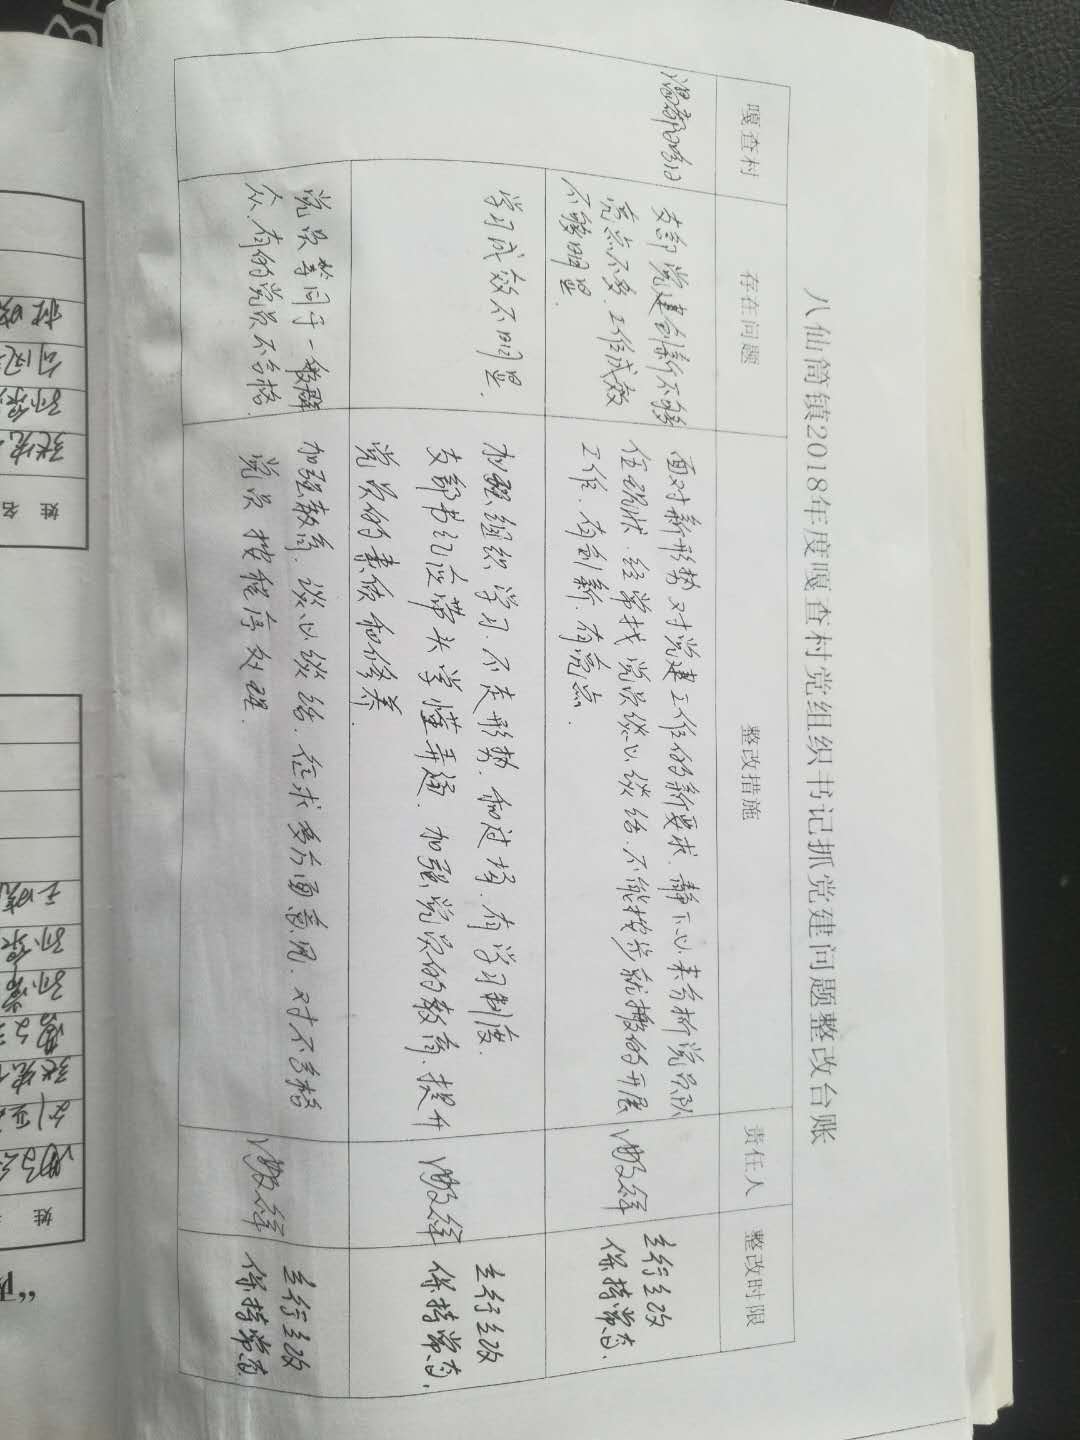 八仙筒镇2018年度嘎查村党组织书记抓党建问题整改台账
嘎查村 存在问题 整改措施 责任人 整改时限
支部党建创新不够
亮点不多.工作成效
不够明显.
面对新形势 对党建工作的新要求.静下心来分析党员队
伍现状.经常找党员谈心谈话.不能按步就搬的开展
工作.有创新.有亮点.
立行立改
保持常态.
学习成效不明显.
加强组织学习.不走形势.和过场.有学习制度.
支部书记应带头学懂弄通.加强党员的教育.提升
党员的素质和修养.
立行立改
保持常态.
党员等同于一般群
众.有的党员不合格.
加强教育.谈心谈话.征求多方面意见.对不合格
党员 按程序处理.
立行立改
保持常态
姓 名
姓